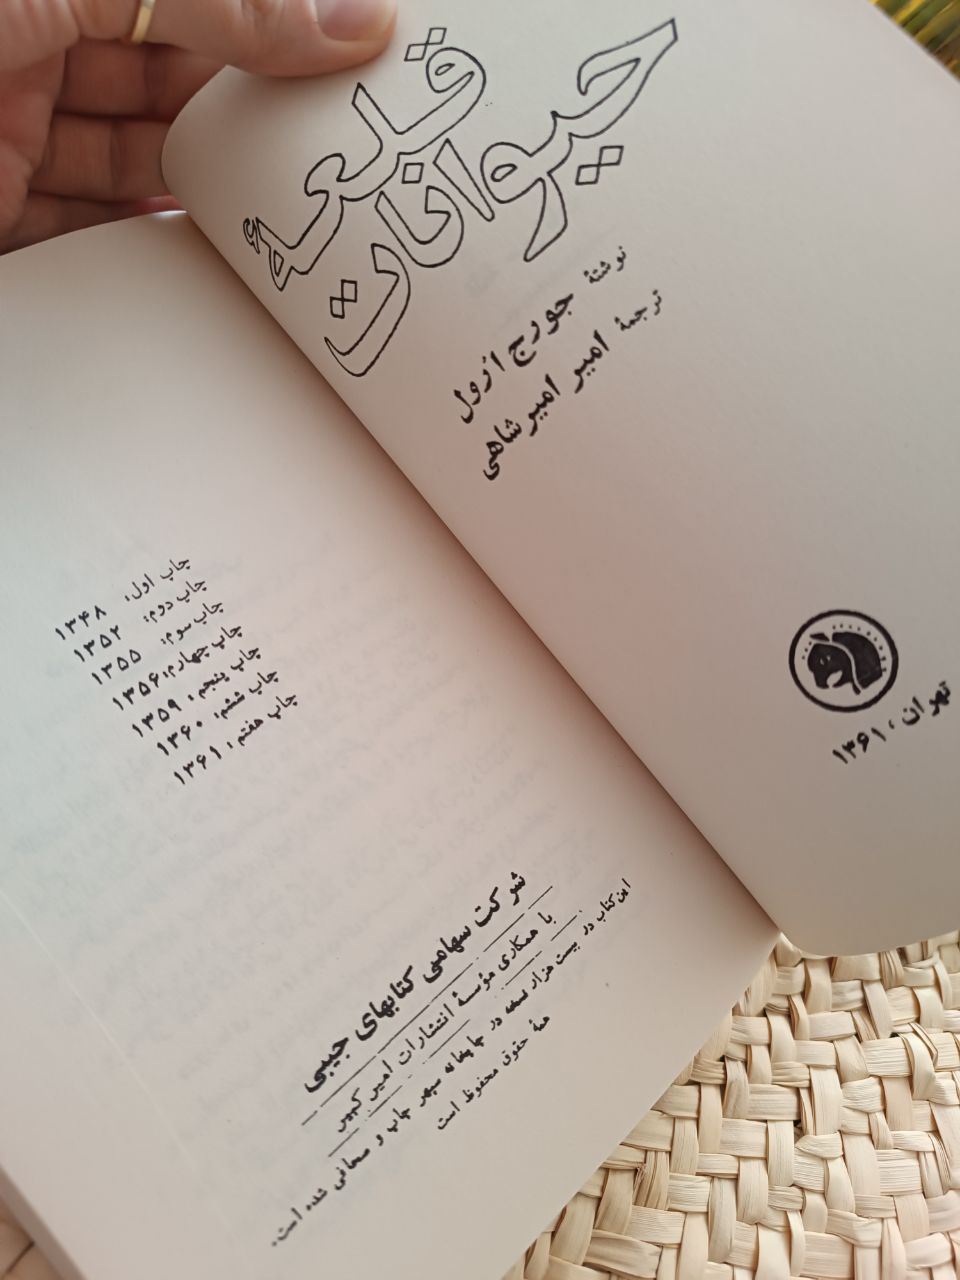 قلعهٔ
حیوانات
نوشتهٔ
جورج اُرول
ترجمهٔ
امیر امیرشاهی
تهران، ۱۳۶۱
چاپ اول: ۱۳۴۸
چاپ دوم: ۱۳۵۲
چاپ سوم: ۱۳۵۵
چاپ چهارم: ۱۳۵۶
چاپ پنجم: ۱۳۵۹
چاپ ششم: ۱۳۶۰
چاپ هفتم: ۱۳۶۱
شرکت سهامی کتابهای جیبی
با همکاری مؤسسهٔ انتشارات امیرکبیر
این کتاب در بیست هزار نسخه در چاپخانه سپهر چاپ و صحافی شده است.
همهٔ حقوق محفوظ است